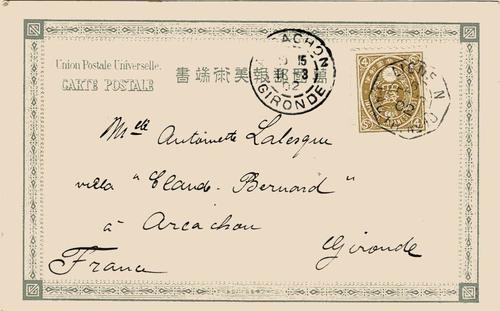 Union Postale Universelle.
CARTE POSTALE
萬國郵報美術端書
ARCACHON
15
3
02
GIRONDE
4
LIGNE N
Mlle Antoinette Lalesque
villa "Claude-Bernard"
à Arcachon
Gironde
France